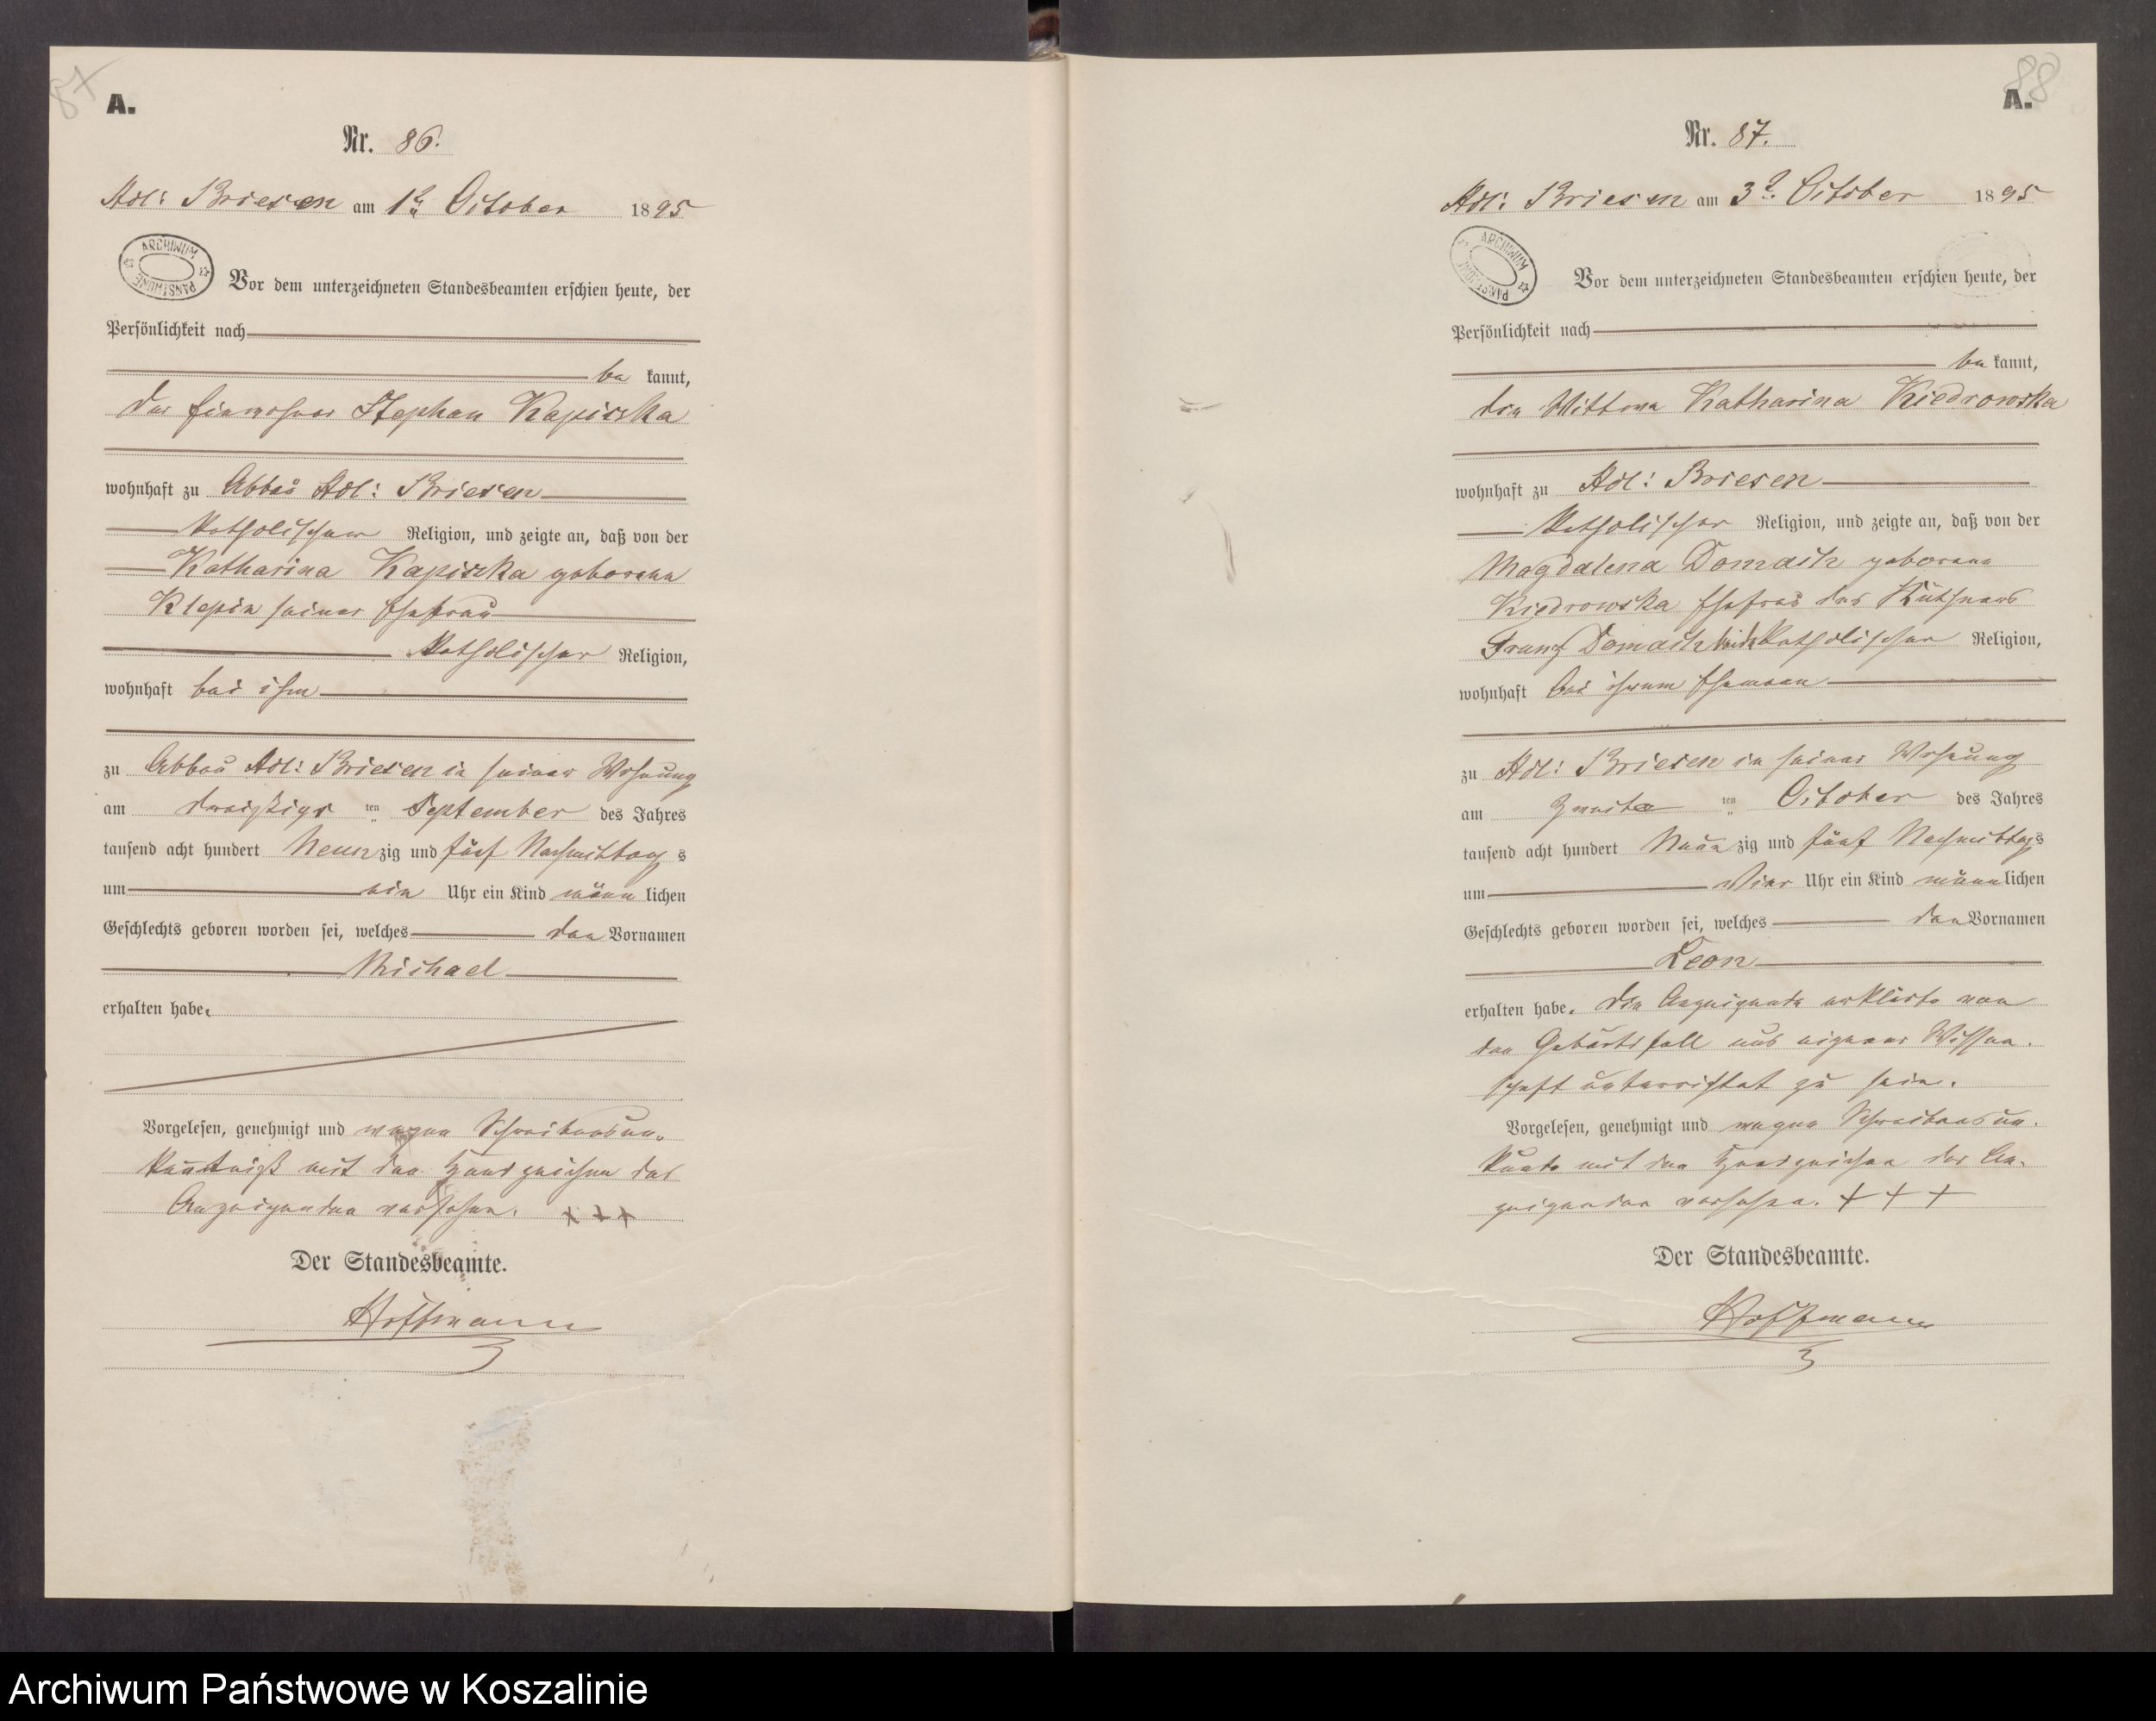 87
A.
Nr. 86.
Adl: Briesen am 1t October 1895
ARCHIWUM PAŃSTWOWE
Vor dem unterzeichneten Standesbeamten erschien heute, der
Persönlichkeit nach
be kannt,
der Einwohner Stephan Kapiszka
wohnhaft zu Abbau Adl: Briesen
Katholischen Religion, und zeigte an, daß von der
Katharina Kapiszka geborene
Klepin seiner Ehefrau
Katholischer Religion,
wohnhaft bei ihm
zu Abbau Adl: Briesen in seiner Wohnung
am dreißigs ten September des Jahres
tausend acht hundert Neun zig und fünf Nachmittag s
um ein Uhr ein Kind männ lichen
Geschlechts geboren worden sei, welches den Vornamen
Michael
erhalten habe.
Vorgelesen, genehmigt und wegen Schreibensun-
kenntniß mit den Handzeichen des
Anzeigenden versehen. + + +
Der Standesbeamte.
Hoffmann
88
A.
Nr. 87.
Adl: Briesen am 3t October 1895
ARCHIWUM PAŃSTWOWE
Vor dem unterzeichneten Standesbeamten erschien heute, der
Persönlichkeit nach
be kannt,
die Wittwe Katharina Kiedrowska
wohnhaft zu Adl: Briesen
Katholischer Religion, und zeigte an, daß von der
Magdalena Domach geborene
Kiedrowska Ehefrau des
Franz Domach beide Katholischer Religion,
wohnhaft bei ihrem Ehemann
zu Adl: Briesen in seiner Wohnung
am Zweite ten October des Jahres
tausend acht hundert Neun zig und fünf Nachmittags
um Vier Uhr ein Kind männ lichen
Geschlechts geboren worden sei, welches den Vornamen
Leon
erhalten habe. Die Anzeigende erklärte von
den Geburtsfall aus eigener Wissen-
schaft unterrichtet zu sein.
Vorgelesen, genehmigt und wegen Schreibensun-
kunde mit den Handzeichen der An-
zeigenden versehen. + + +
Der Standesbeamte.
Hoffmann
Archiwum Państwowe w Koszalinie